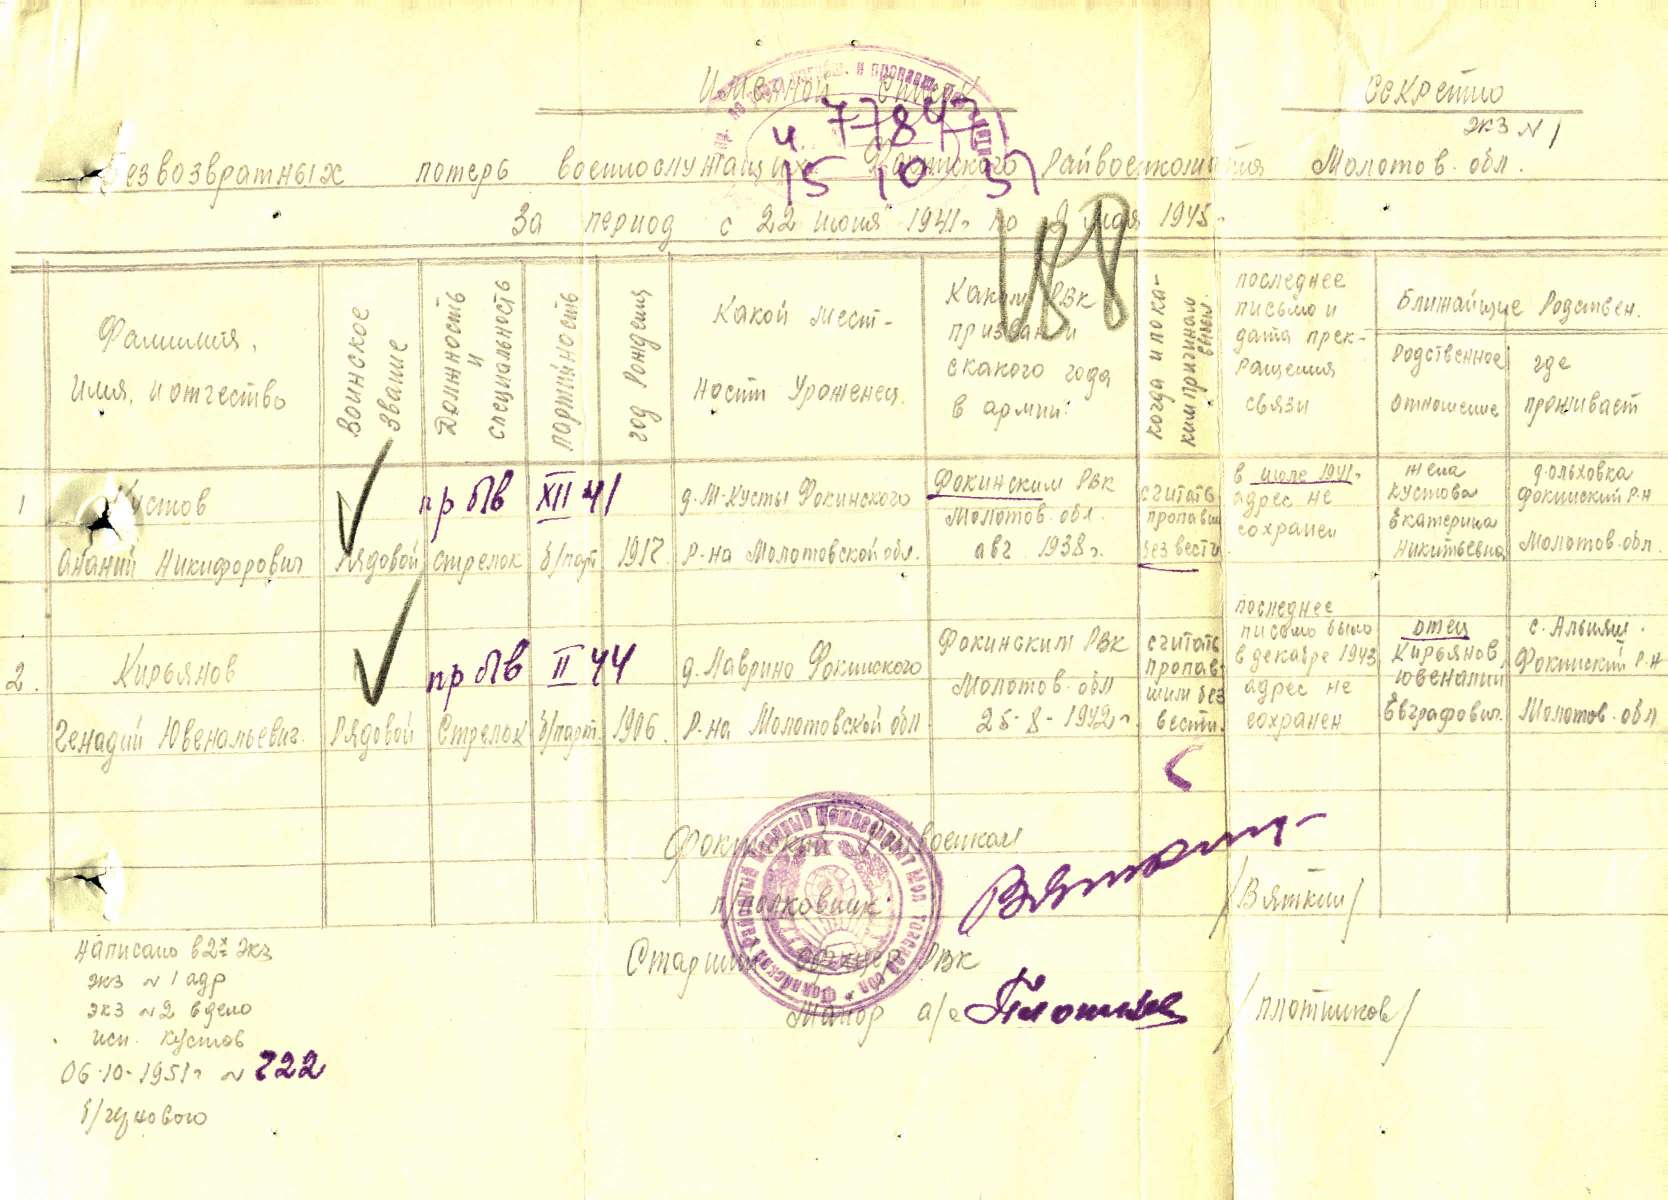 Именной список
Секретно
экз № 1
ч. 77847
15 10 51
безвозвратных потерь военнослужащих Фокинского Райвоенкомата Молотов. обл.
За период с 22 июня 1941г по 9 мая 1945г
188
Фамилия, имя, и отчество
Воинское звание
Должность и специальность
партийность
год Рождения
Какой мест-ности Уроженец.
Каким РВК призван и с какого года в армии.
когда и по ка-ким причинам выбыл.
последнее письмо и дата прек-ращения связи
Ближайшие Родствен.
Родственное отношение
где проживает
1
Кустов
Ананий Никифорович
Рядовой
пр б/в XII 41
стрелок
б/парт
1917.
д. М-Кусты Фокинского
Р-на Молотовской обл.
Фокинским РВК
Молотов. обл.
авг 1938г.
считать
пропавш
без вести
в июле 1941г
адрес не
сохранен
жена
Кустова
Екатерина
Никитьевна
д. Ольховка
Фокинский Р-н
Молотов. обл.
2.
Кирьянов
Генадий Ювенальевич.
Рядовой
пр б/в II 44
Стрелок
б/парт.
1906.
д. Лаврино Фокинского
Р-на Молотовской обл
Фокинским РВК
Молотов. обл
25-8-1942г.
считать
пропав-
шим без
вести.
последнее
письмо было
в декабре 1943
адрес не
сохранен
отец
Кирьянов
Ювеналий
Евграфович.
с. Альняш.
Фокинский Р-н
Молотов. обл
Фокинский Райвоенком
п/полковник
/Вяткин/
Старший офицер РВК
Майор а/с
/Плотников/
Фокинский Районный Военный Комиссариат Молотовской обл
Написано в 2х экз
экз № 1 адр
экз № 2 в дело
исп. Кустов
06-10-1951г № 722
б/чернового